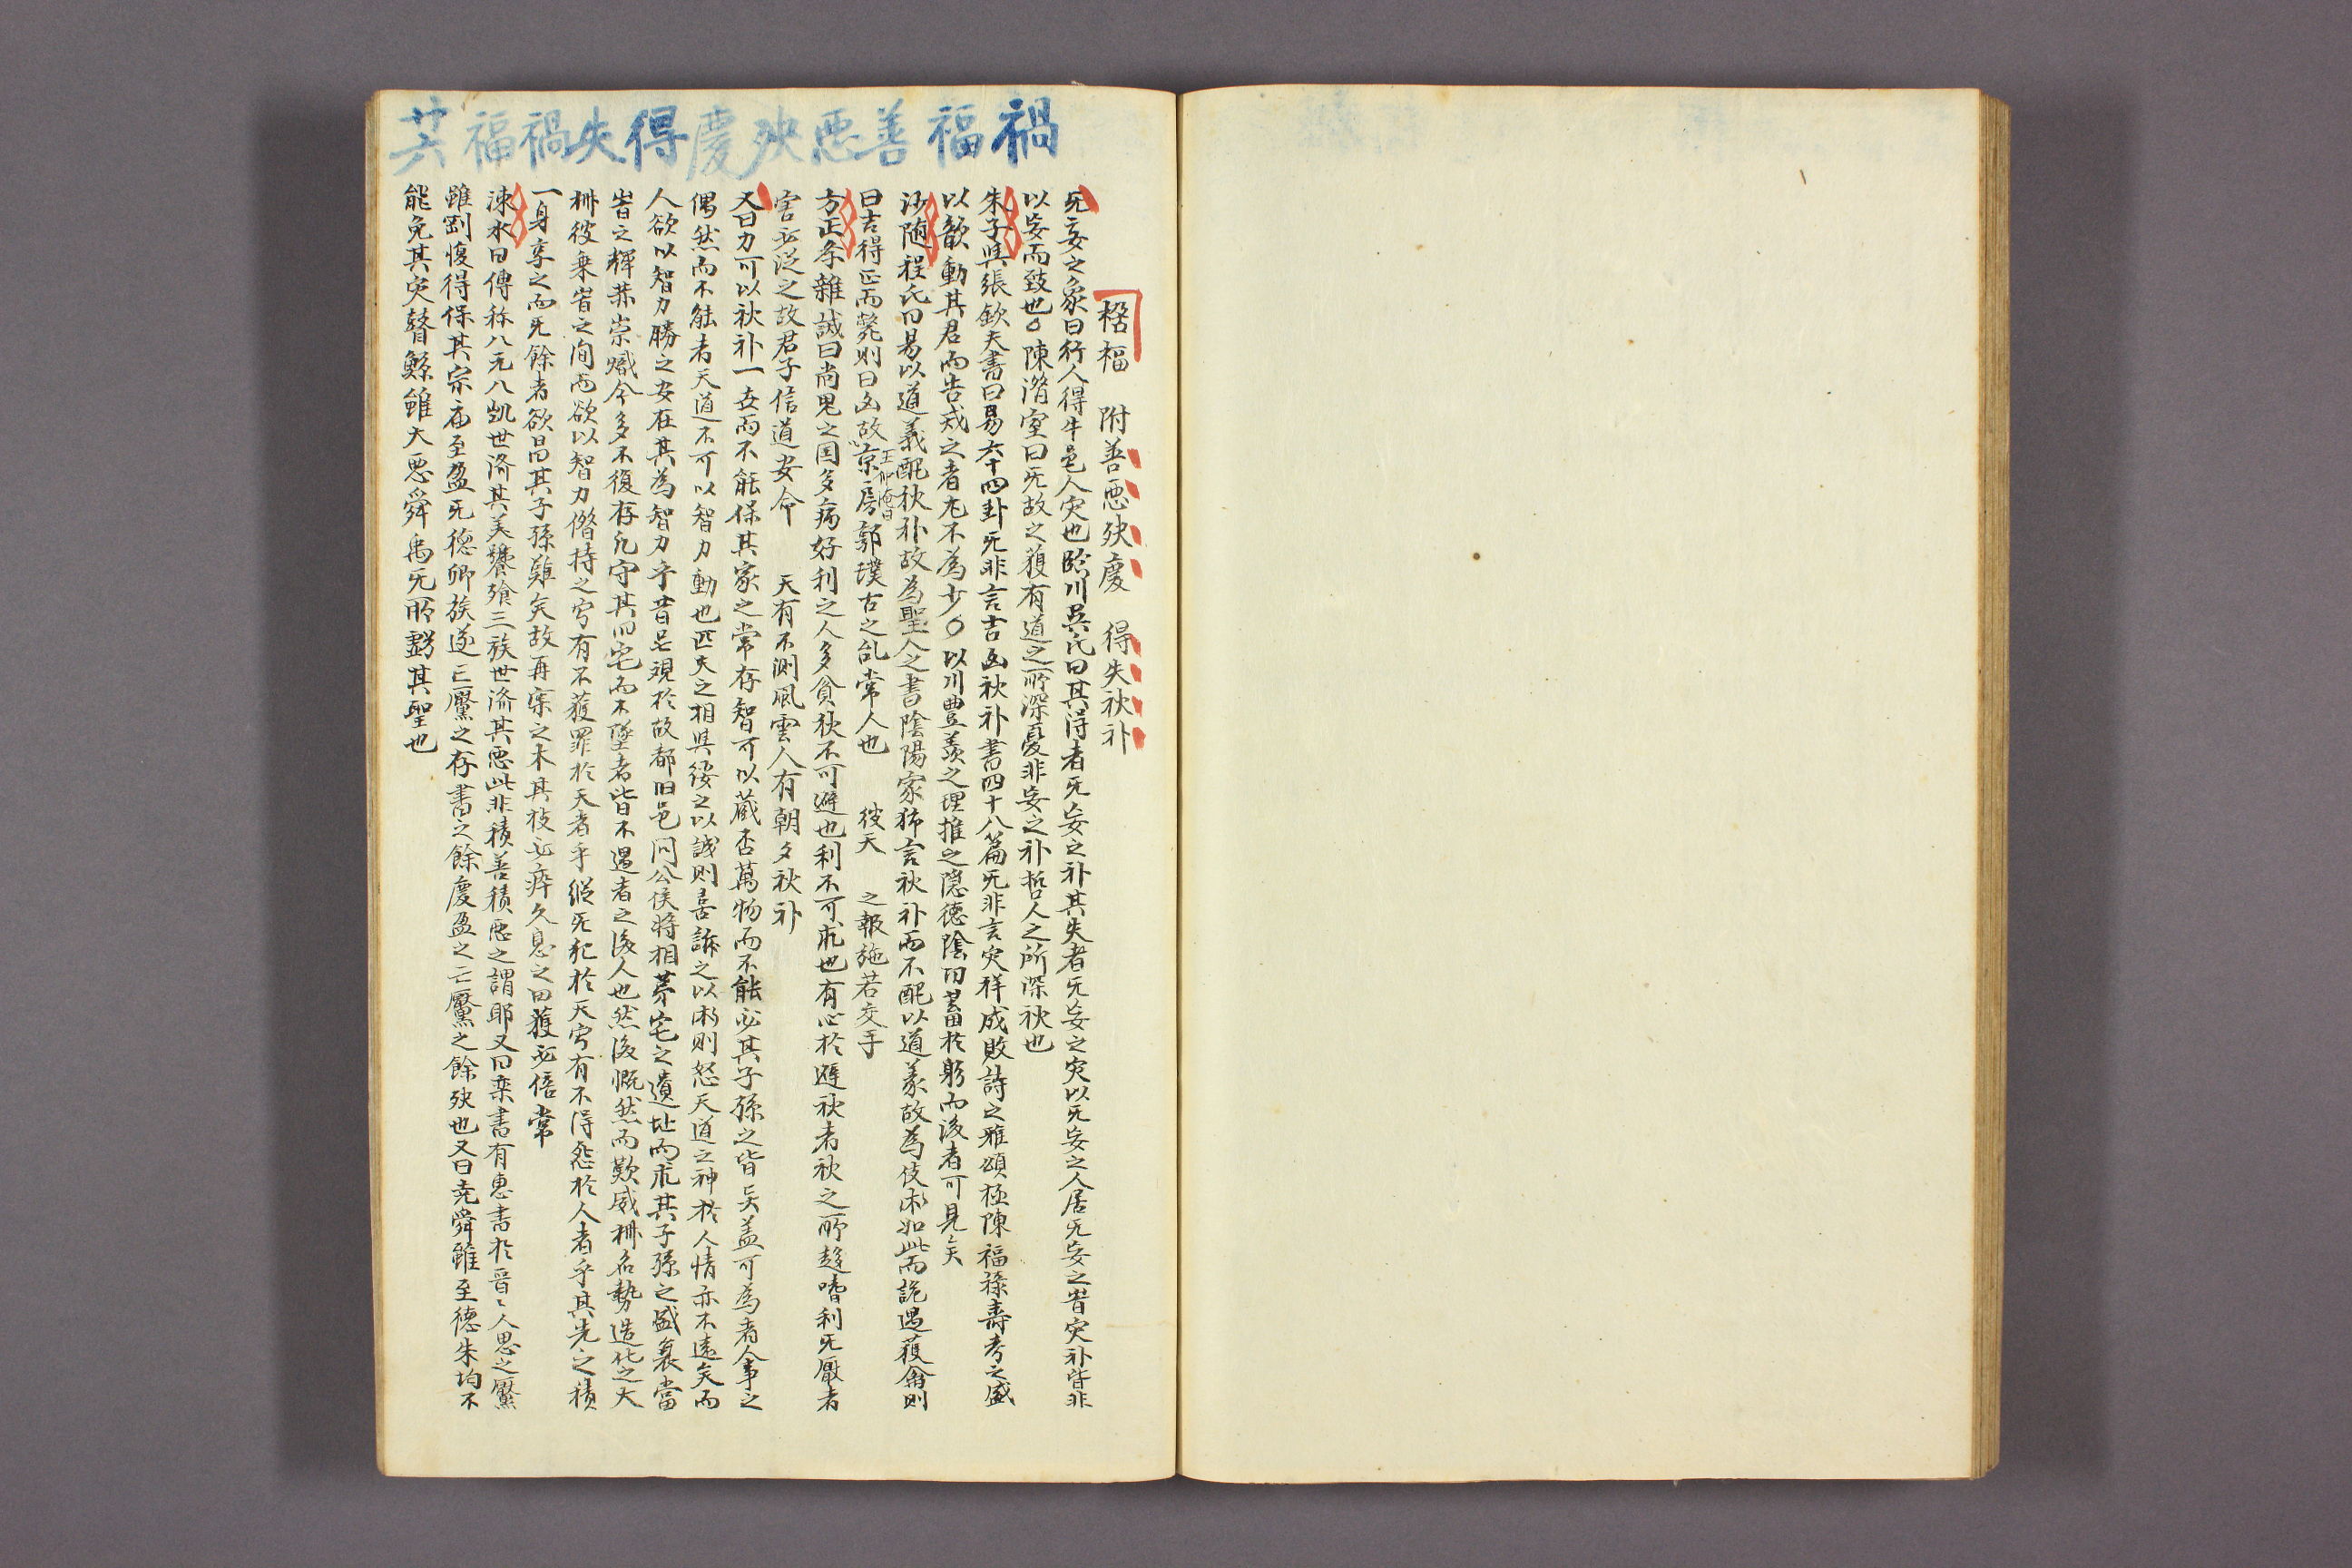 禍福善惡殃慶得失禍福 共
福 附善惡殃慶 得失秋补
无妄之象曰行人得牛邑人灾也臨川吳氏曰其得者无妄之补其失者无妄之灾以无妄之人居无妄之旹灾补皆非
以妄而致也○陳潛室曰无故之獲有道之所深憂非妄之补哲人之所深秋也
朱子與張欽夫書曰易六十四卦无非言吉凶秋补書四十八篇无非言灾祥成敗詩之雅頌極陳福祿壽考之盛
以歆動其君而告戒之者尤不為少○以川豊羨之理推之隱德陰旧蓄於躬而後者可見矣
沙随程氏曰易以道義配秋补故為聖人之書陰陽家独言秋补而不配以道義故為伎术如此而詭遇獲禽則
曰吉得正而斃則曰凶故京房郭璞古之乱常人也 彼天 之報施若交手
方正孝雜誡曰尚鬼之国多病好利之人多貧秋不可避也利不可求也有心於避秋者秋之所趍嗜利无厭者
害必從之故君子信道安命 天有不測風雲人有朝夕秋补
又曰力可以秋补一世而不能保其家之常存智可以藏否萬物而不能必其子孫之皆矣盖可為者人事之
偶然而不能者天道不可以智力動也匹夫之相與綏之以誠則喜訴之以术則怒天道之神於人情亦不遠矣而
人欲以智力勝之安在其為智力乎昔吾視於故都旧邑问公侯將相苐宅之遺址而求其子孫之盛衰當
旹之輝赫崇熾今多不復存凡守其旧宅而不墜者皆不遇者之後人也然後慨然而歎威柄名勢造化之大
柄彼乗旹之间而欲以智力僭持之寧有不獲罪於天者乎縱无犯於天寧有不得怨於人者乎其先之積
一身享之而无餘者欲昌其子孫難矣故再寔之木其枝必瘁久息之田獲必倍常
涑水曰傳称八元八凱世济其美饕飱三族世济其惡此非積善積惡之謂耶又曰栾書有惠書於晋〻人思之黶
雖剛愎得保其宗庙至盈无德卿族遂亡黶之存書之餘慶盈之亡黶之餘殃也又曰尭舜雖至德朱均不
能免其灾瞽鯀雖大惡舜禹无所虧其聖也